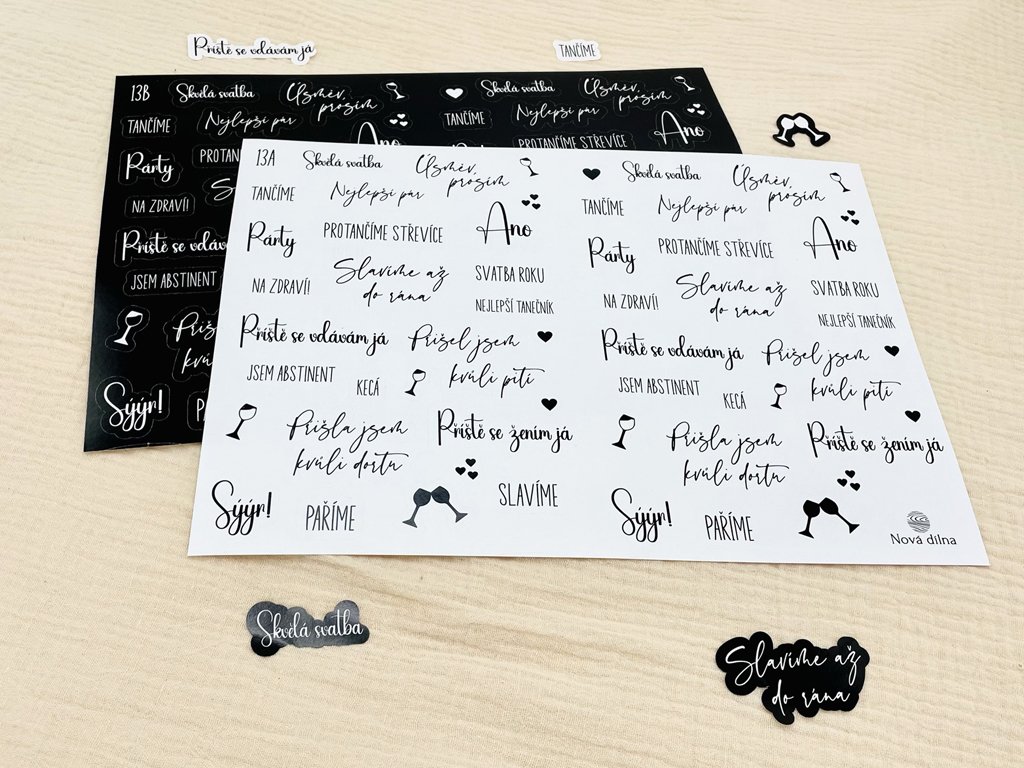 Příště se vdávám já
TANČÍME
13B Skvělá svatba Úsměv, prosím Skvělá svatba Úsměv, prosím
TANČÍME Nejlepší pár TANČÍME Nejlepší pár
Párty PROTAN Ano PROTANČÍME STŘEVÍCE Ano
NA ZDRAVÍ!
Příště se vdáv
JSEM ABSTINENT
Přiš
kvůli
Sýýr!
13A Skvělá svatba Úsměv, prosím Skvělá svatba Úsměv, prosím
TANČÍME Nejlepší pár TANČÍME Nejlepší pár
Párty PROTANČÍME STŘEVÍCE Ano Párty PROTANČÍME STŘEVÍCE Ano
NA ZDRAVÍ! Slavíme až do rána SVATBA ROKU NA ZDRAVÍ! Slavíme až do rána SVATBA ROKU
NEJLEPŠÍ TANEČNÍK NEJLEPŠÍ TANEČNÍK
Příště se vdávám já Přišel jsem kvůli pití Příště se vdávám já Přišel jsem kvůli pití
JSEM ABSTINENT KECÁ JSEM ABSTINENT KECÁ
Přišla jsem kvůli dortu Příště se žením já Přišla jsem kvůli dortu Příště se žením já
Sýýr! PAŘÍME SLAVÍME Sýýr! PAŘÍME
Nová dílna
Skvělá svatba
Slavíme až
do rána